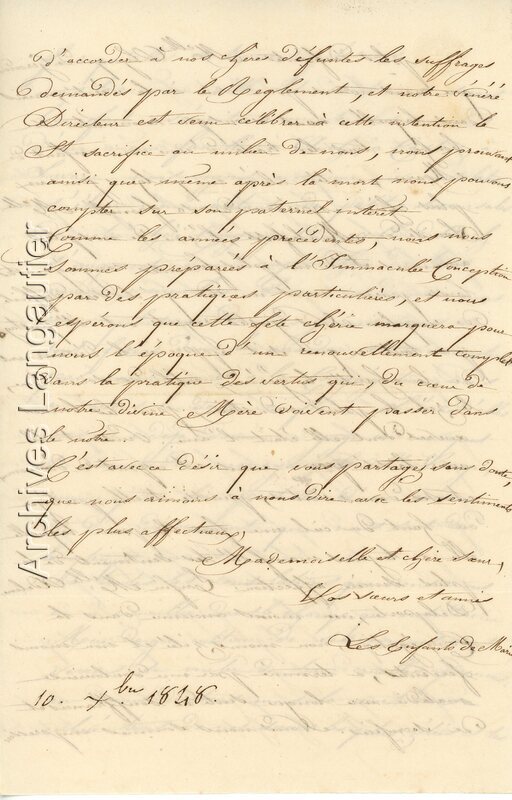 d'accorder à nos chères défuntes les suffrages
demandés par le Règlement, et notre vénéré
Directeur est venu célébrer à cette intention le
St sacrifice au milieu de nous, nous prouvant
ainsi que même après la mort nous pouvons
compter sur son paternel intérêt.
Comme les années précédentes, nous nous
sommes préparées à l'Immaculée Conception
par des pratiques particulières, et nous
espérons que cette fête chérie marquera pour
nous l'époque d'un renouvellement complet
dans la pratique des vertus qui, du cœur de
notre divine Mère doivent passer dans
le nôtre.
C'est avec ce désir que vous partagez sans doute,
que nous aimons à nous dire avec les sentiments
les plus affectueux,
Mademoiselle et chère sœur,
Vos sœurs et amies
Les Enfants de Marie
10. Xbre 1848.
Archives Langautier